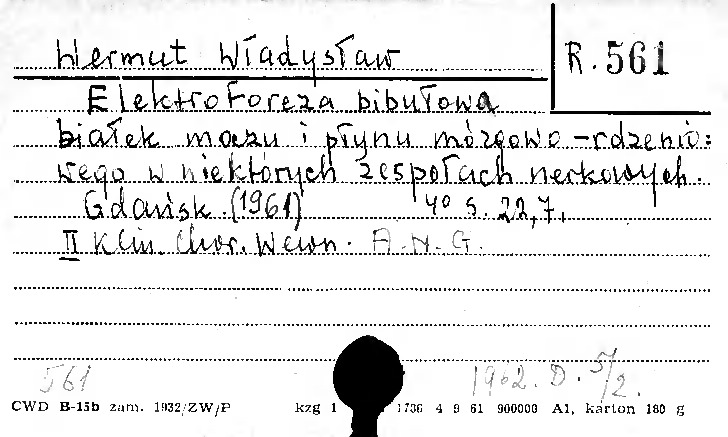 Wermut Władysław
R. 561
Elektroforeza bibułowa
białek moczu i płynu mózgowo-rdzenio=
wego w niektórych zespołach nerkowych.
Gdańsk. (1961) 4° s. 22,7.
II Klin. Chor. Wewn. A.M.G.
561 1962. D. 5/2.
CWD B-15b zam. 1932/ZW/P kzg 1 1736 4 9 61 900000 A1, karton 180 g